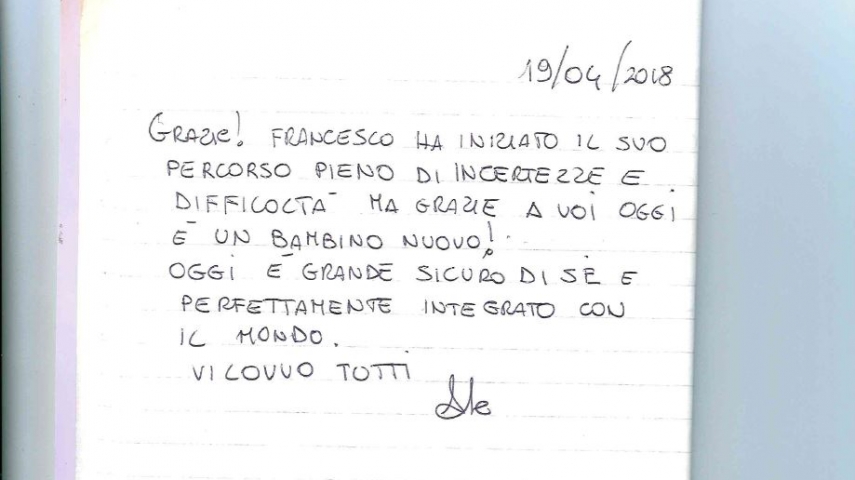 19/04/2018
GRAZIE! FRANCESCO HA INIZIATO IL SUO
PERCORSO PIENO DI INCERTEZZE E
DIFFICOLTÀ MA GRAZIE A VOI OGGI
È UN BAMBINO NUOVO!
OGGI È GRANDE SICURO DI SÈ E
PERFETTAMENTE INTEGRATO CON
IL MONDO.
VI LOVVO TUTTI
Ale